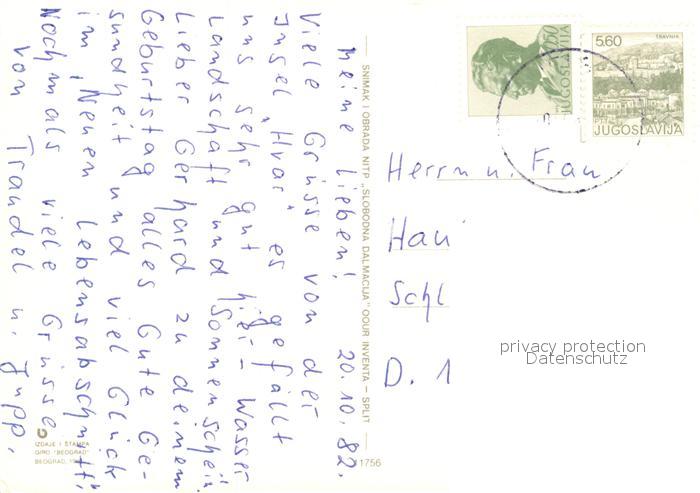 meine Lieben! 20.10.82.
Viele Grüsse von der
Insel „Hvar" es gefällt
uns sehr gut hier - Wasser
Landschaft und Sonnenschein
Lieber Gerhard zu deinem
Geburtstag alles Gute Ge-
sundheit und viel Glück
im „Neuen Lebensabschnitt"
Nochmals viele Grüsse
von Traudel u. Jupp.
SNIMAK I OBRADA NITP „SLOBODNA DALMACIJA" OOUR INVENTA – SPLIT
1756
IZDAJE I ŠTAMPA
GIRO "BEOGRAD"
BEOGRAD,
JUGOSLAVIJA
5.60
TRAVNIK
PTT
JUGOSLAVIJA
Herrn u. Frau
Hau
Schl
D. 1
privacy protection
Datenschutz